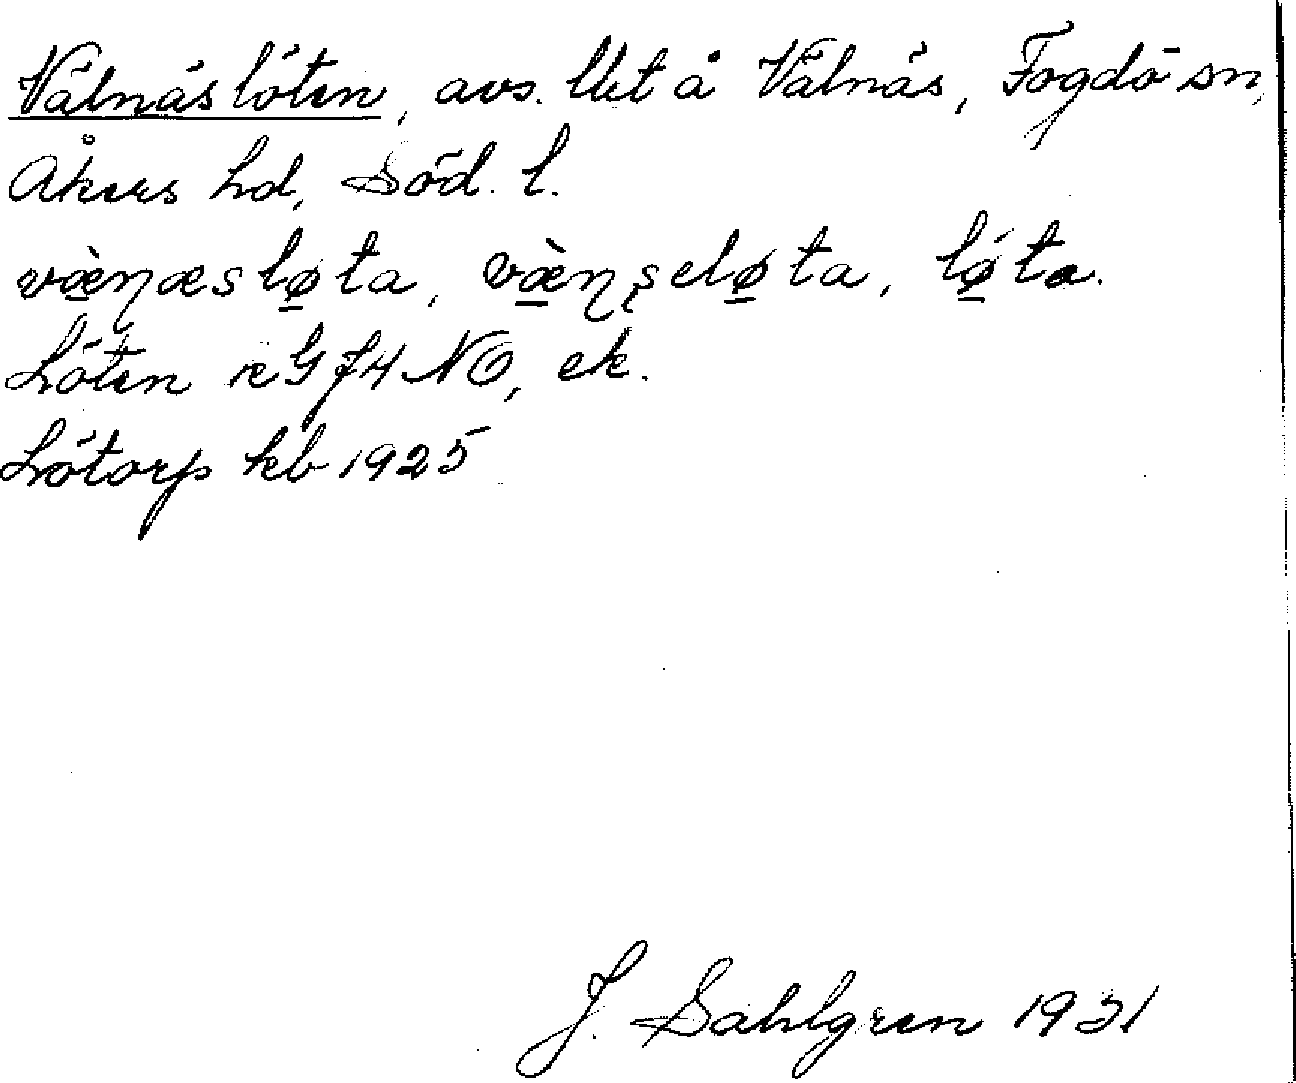 Välnäslöten, avs. lht å Välnäs, Fogdö sn,
Åkers hd, Söd. l.
væ̀ɳæsløta, væ̀ɳʂeløta, lǿta.
Löten RG J4 NO, ek.
Lötorp kb 1925
J. Sahlgren 1931